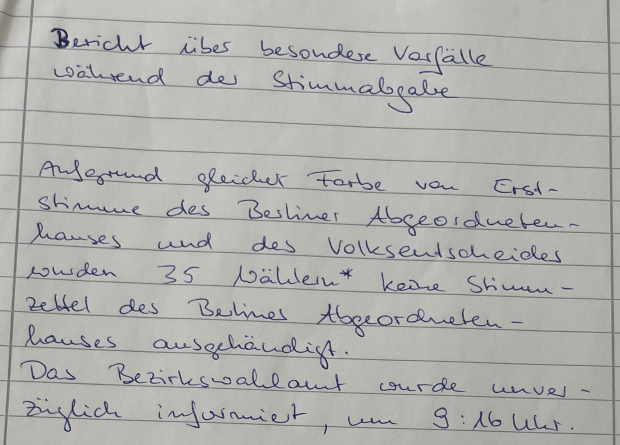 Bericht über besondere Vorfälle
während der Stimmabgabe
Aufgrund gleicher Farbe von Erst-
stimme des Berliner Abgeordneten-
hauses und des Volksentscheides
wurden 35 Wählern* keine Stimm-
zettel des Berliner Abgeordneten-
hauses ausgehändigt.
Das Bezirkswahlamt wurde unver-
züglich informiert, um 9:16 Uhr.